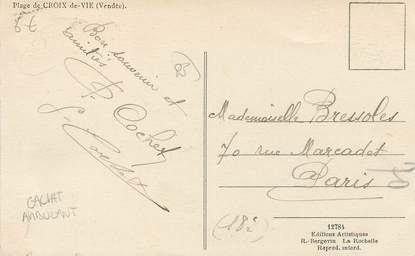 Plage de CROIX-de-VIE (Vendée).
Bon souvenir et
amitiés
P. Cochet
CACHET
AMBULANT
Mademoiselle Bressoles
70 rue Marcadet
Paris
(18e)
12784
Editions Artistiques
R. Bergevin La Rochelle
Reprod. interd.